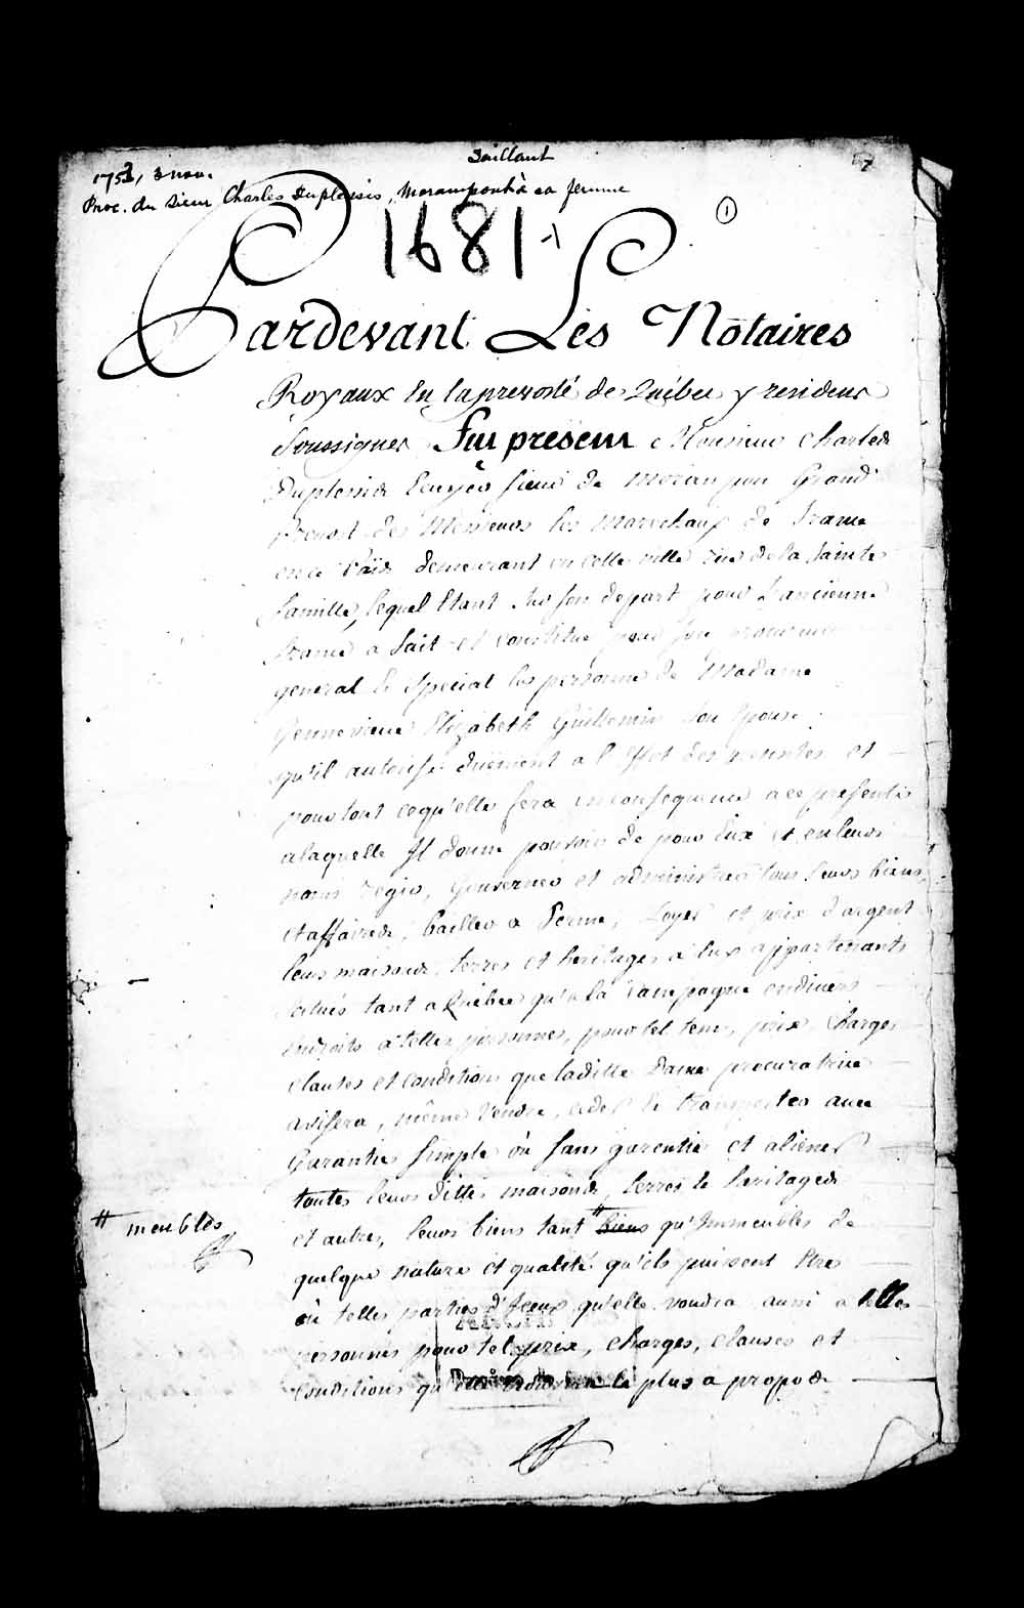 Saillant
1753, 3 nov.
Proc. du Sieur Charles Duplessis, Morampont à sa femme
1681
1
Pardevant Les Notaires
Royaux En la prevosté de Quebec y residens
Soussignes Fut présent Monsieur Charles
Duplessis Ecuyer sieur de Morampon Grand
Prevost des Messieurs les Marechaux de france
en ce païs demeurant en cette ville rue de la Sainte
famille, lequel Etant sur son depart pour L'ancienne
france a fait et constitué pour son
general & special la personne de Madame
Gennevieve Elizabeth Guillemin son Epouse
qu'il autorise duement a l'effet des presentes et
pour tout ce qu'elle fera en consequence a ce presente
a laquelle Il donne pouvoir de pour Eux et en leurs
noms regir, Gouverner et administrer tous leurs biens
et affaires, bailler a ferme, Loyer et prix d'argent
leurs maisons, terres et heritages a Eux appartenants
situés tant a Quebec qu'a la Campagne en divers
endroits a telles personnes, pour tel tems, prix, Charges
clauses et conditions que laditte Dame procuratrice
avisera, même Vendre, ceder & transporter avec
Garantie simple ou sans garentie et aliener
toutes leurs dittes maisons, terres & heritages
et autres, leurs biens tant # biens qu'Immeubles de
# meubles
quelque nature et qualité qu'ils puissent Etre
ou telles parties d'Iceux qu'elle voudra aussi a telles
personnes pour tel prix, charges, clauses et
conditions qu'elle le plus a propos